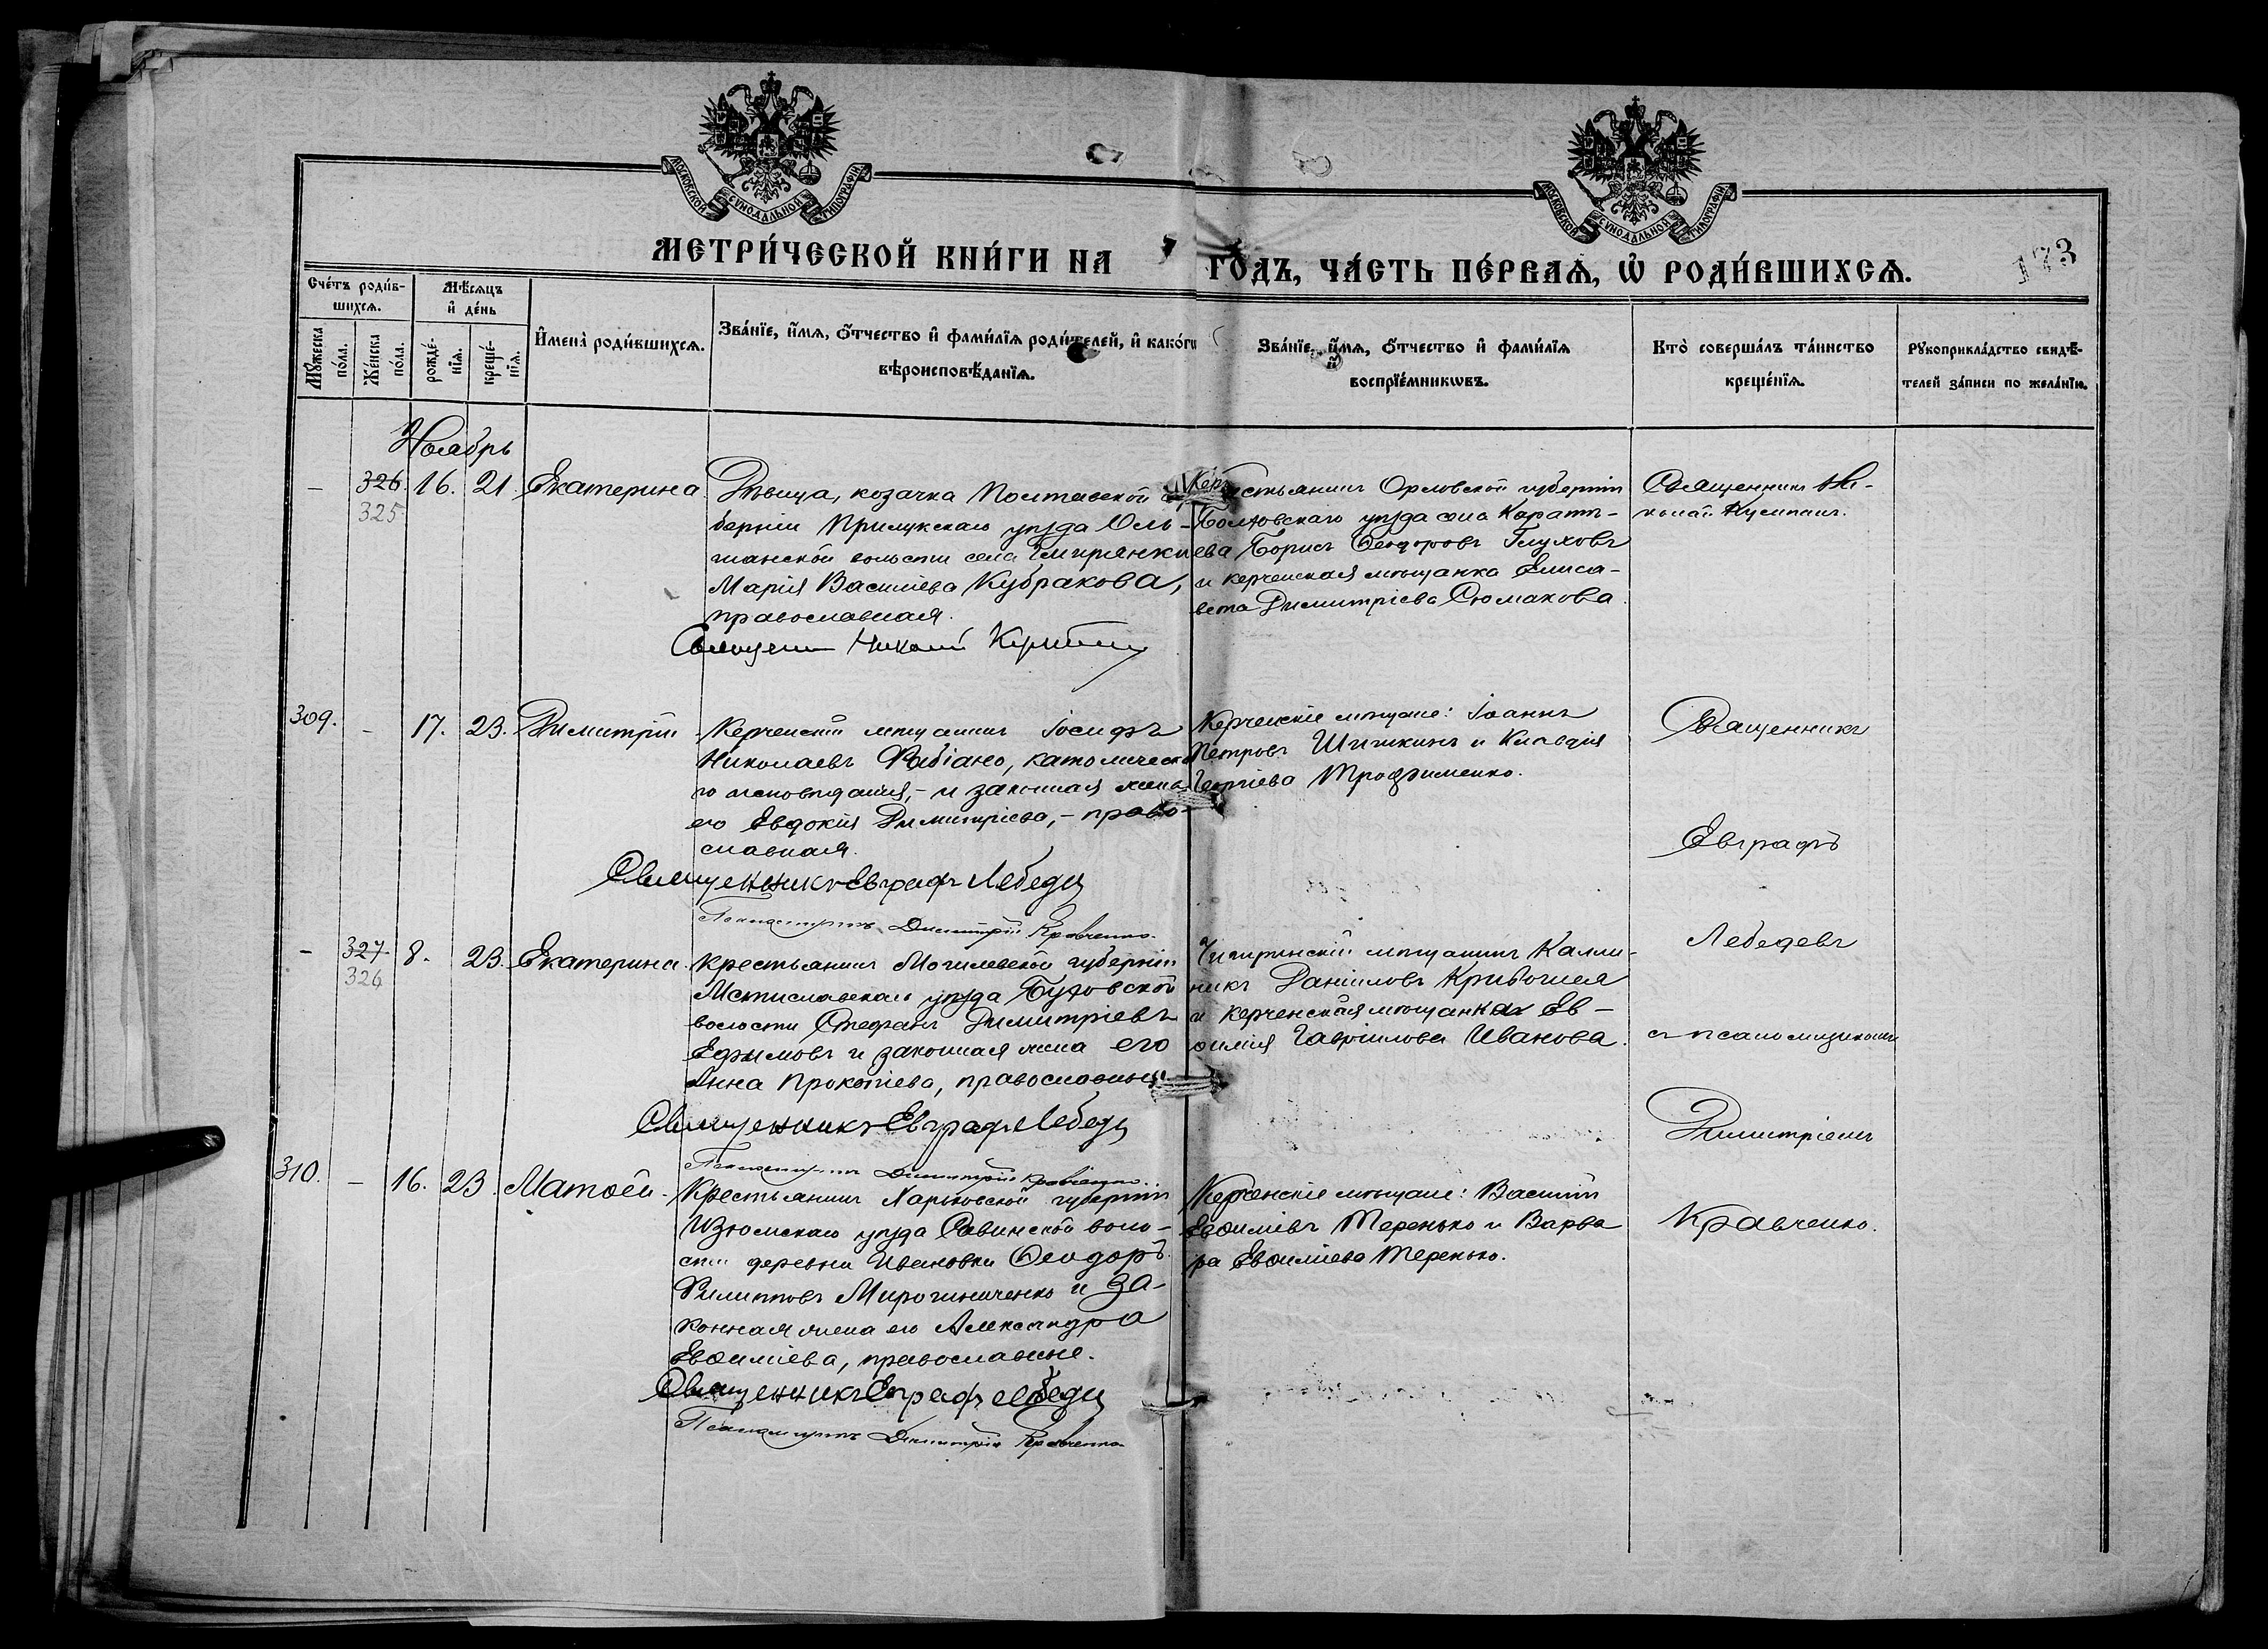 МОСКОВСКОЙ СѴНОДАЛЬНОЙ ТИПОГРАФІИ
МОСКОВСКОЙ СѴНОДАЛЬНОЙ ТИПОГРАФІИ
МЕТРИ́ЧЕСКОЙ КНИ́ГИ НА ГО́ДЪ, ЧА́СТЬ ПЕ́РВАѦ, Ѡ҆ РОДИ́ВШИХСѦ.
173
Сче́тъ роди́в-
шихсѧ.
Мѣ́сяцъ
и҆ де́нь
Мꙋ́жеска
по́ла.
Же́нска
по́ла.
рожде́-
нїѧ.
креще́-
нїѧ.
И҆мена̀ роди́вшихсѧ.
Зва́нїе, и҆́мѧ, ѻ҆́тчество и҆ фами́лїѧ роди́телей, и҆ како́гѡ
вѣроисповѣ́данїѧ.
Зва́нїе, и҆́мѧ, ѻ҆́тчество и҆ фами́лїѧ
воспрїе́мникѡвъ.
Кто̀ соверша́лъ та́инство
креще́нїѧ.
Рꙋкоприкла́дство свидѣ́-
телей за́писи по жела́нїю.
Ноябрь
– 326. 16. 21. Екатерина.
325.
Дѣвица, козачка Полтавской гу-
берніи Прилукскаго уѣзда Оль-
шанской волости села
Марія Васильева Кубракова,
православная.
Священникъ Николай
Крестьянинъ Орловской губерніи
Болховскаго уѣзда села Карать-
ева Борисъ Ѳеодоровъ Глуховъ
и керченская мѣщанка Елиса-
вета Димитріева Сюмакова.
Священникъ Ни-
колай
309. – 17. 23. Димитрій
Керченскій мѣщанинъ Іосифъ
Николаевъ Фабіано, католическа-
го исповѣданія, – и законная жена
его Евдокія Димитріева, – право-
славная.
Священникъ Евграфъ Лебедевъ
Псаломщикъ Димитрій Кравченко.
Керченскіе мѣщане: Іоаннъ
Петровъ Шишкинъ и Клавдія
Георгіева Трофименко.
Священникъ
Евграфъ
Лебедевъ
съ псаломщикомъ
Димитріемъ
Кравченко.
– 327 8. 23. Екатерина.
326
Крестьянинъ Могилевской губерніи
Мстиславскаго уѣзда Бутовской
волости Стефанъ Димитріевъ
Ефимовъ и законная жена его
Анна Прокопіева, православные.
Священникъ Евграфъ Лебедевъ
Псаломщикъ Димитрій Кравченко.
Чигиринскій мѣщанинъ Калли-
никъ Даніиловъ Кривошея
и керченская мѣщанка Ев-
ѳимія Гавріилова Иванова.
310. – 16. 23. Матѳей.
Крестьянинъ Харьковской губерніи
Изюмскаго уѣзда Савинской воло-
сти деревни Ивановки Ѳеодоръ
Филипповъ Мирошниченко и за-
конная жена его Александра
Евѳиміева, православные.
Священникъ Евграфъ Лебедевъ
Псаломщикъ Димитрій Кравченко
Керченскіе мѣщане: Василій
Евѳиміевъ Теренько и Варва
ра Евѳиміева Теренько.